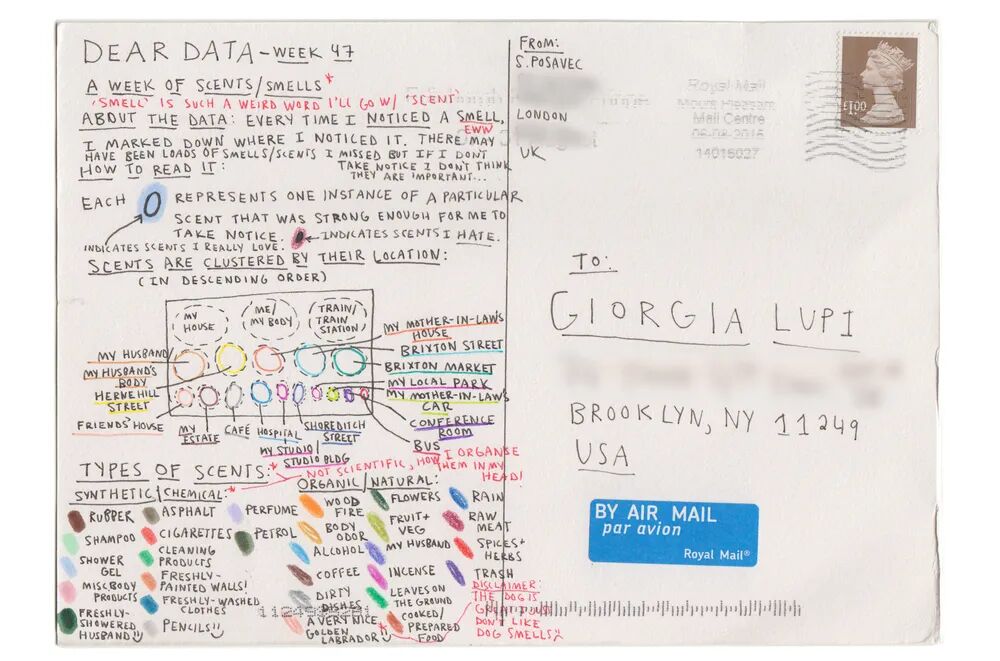 DEAR DATA - WEEK 47
A WEEK OF SCENTS/SMELLS*
'SMELL' IS SUCH A WEIRD WORD I'LL GO W/ 'SCENT'
ABOUT THE DATA: EVERY TIME I NOTICED A SMELL,
EWW
I MARKED DOWN WHERE I NOTICED IT. THERE MAY
HAVE BEEN LOADS OF SMELLS/SCENTS I MISSED BUT IF I DON'T
TAKE NOTICE I DON'T THINK
THEY ARE IMPORTANT...
HOW TO READ IT:
EACH O REPRESENTS ONE INSTANCE OF A PARTICULAR
SCENT THAT WAS STRONG ENOUGH FOR ME TO
TAKE NOTICE.
INDICATES SCENTS I HATE.
INDICATES SCENTS I REALLY LOVE.
SCENTS ARE CLUSTERED BY THEIR LOCATION:
(IN DESCENDING ORDER)
MY
HOUSE
ME/
MY BODY
TRAIN/
TRAIN
STATION
MY HUSBAND
MY HUSBAND'S
BODY
HERNE HILL
STREET
FRIENDS' HOUSE
MY
ESTATE
CAFÉ
HOSPITAL
MY STUDIO/
STUDIO BLDG
SHOREDITCH
STREET
MY MOTHER-IN-LAW'S
HOUSE
BRIXTON STREET
BRIXTON MARKET
MY LOCAL PARK
MY MOTHER-IN-LAW'S
CAR
CONFERENCE
ROOM
BUS
TYPES OF SCENTS:*
* NOT SCIENTIFIC, HOW I ORGANISE
THEM IN MY
HEAD!
SYNTHETIC/CHEMICAL:*
RUBBER
SHAMPOO
SHOWER
GEL
MISC BODY
PRODUCTS
FRESHLY-
SHOWERED
HUSBAND
ASPHALT
CIGARETTES
CLEANING
PRODUCTS
FRESHLY-
PAINTED WALLS!
FRESHLY-WASHED
CLOTHES
PENCILS
PERFUME
PETROL
ORGANIC/NATURAL:
WOOD
FIRE
BODY
ODOR
ALCOHOL
COFFEE
DIRTY
DISHES
A VERY NICE *
GOLDEN
LABRADOR
FLOWERS
FRUIT+
VEG
MY HUSBAND
INCENSE
LEAVES ON
THE GROUND
COOKED/
PREPARED
FOOD
RAIN
RAW
MEAT
SPICES+
HERBS
TRASH
DISCLAIMER:
THE DOG IS
GREAT I JUST
DON'T LIKE
DOG SMELLS
FROM:
S. POSAVEC
LONDON
UK
Royal Mail
Mount Pleasant
Mail Centre
14016027
£1.00
TO:
GIORGIA LUPI
BROOKLYN, NY 11249
USA
BY AIR MAIL
par avion
Royal Mail®